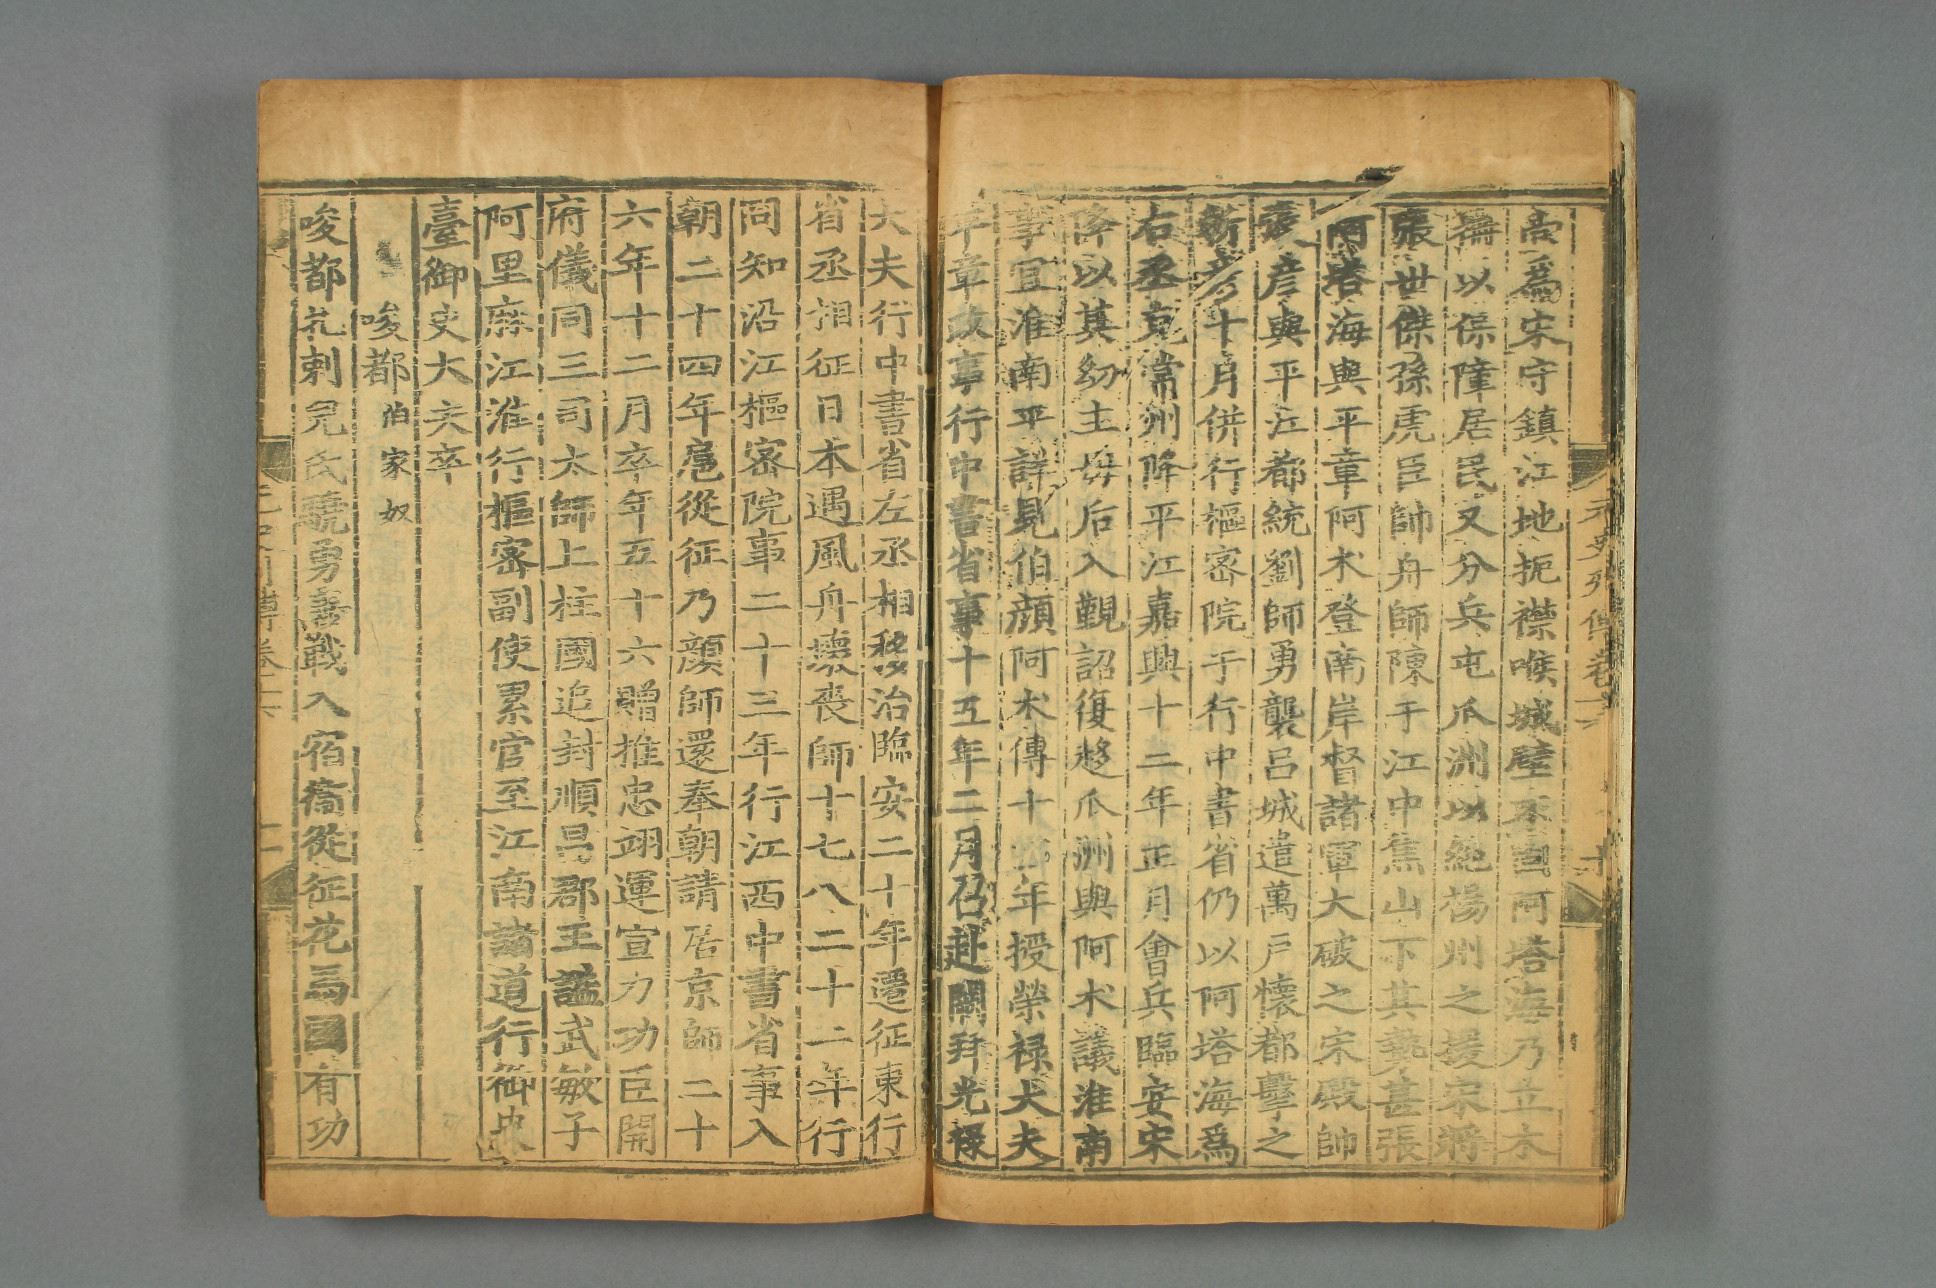 元史列傳卷十六
尚爲宋守鎮江地扼襟喉城壁不固阿塔海乃立木
柵以保障居民又分兵屯瓜洲以絶揚州之援宋將
張世傑孫虎臣帥舟師陳于江中焦山下其勢甚張
阿塔海與平章阿朮登南岸督諸軍大破之宋殿帥
張彦與平江都統劉師勇襲呂城遣萬戸懷都擊之
斬彦十月併行樞密院于行中書省仍以阿塔海爲
右丞克常州降平江嘉興十二年正月會兵臨安宋
降以其幼主母后入覲詔復趍瓜洲與阿朮議淮南
事宜淮南平詳見伯顔阿朮傳十四年授榮禄大夫
平章政事行中書省事十五年二月召赴闕拜光禄
大夫行中書省左丞相移治臨安二十年遷征東行
省丞相征日本遇風舟壞喪師十七八二十二年行
同知沿江樞密院事二十三年行江西中書省事入
朝二十四年扈從征乃顔師還奉朝請居京師二十
六年十二月卒年五十六贈推忠翊運宣力功臣開
府儀同三司太師上柱國追封順昌郡王諡武敏子
阿里麻江淮行樞密副使累官至江南諸道行御史
臺御史大夫卒
唆都伯家奴
唆都札剌兒氏驍勇善戰入宿衞從征花馬國有功